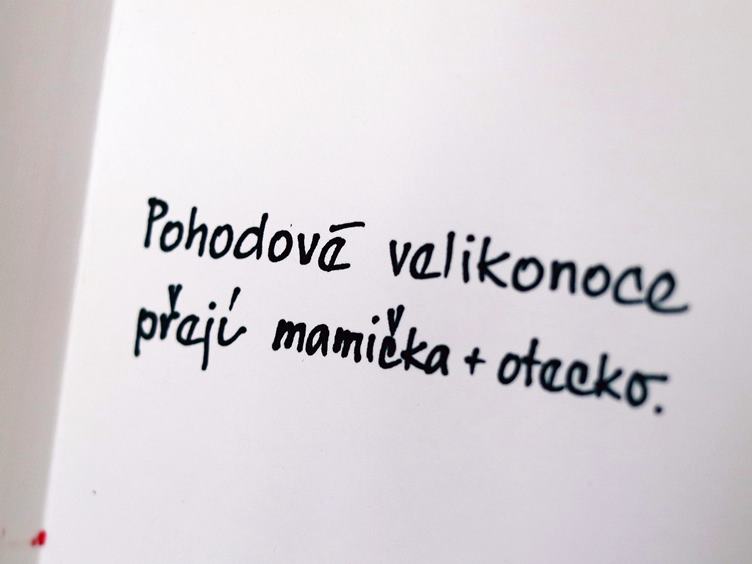 Pohodové velikonoce
přejí mamička + otecko.